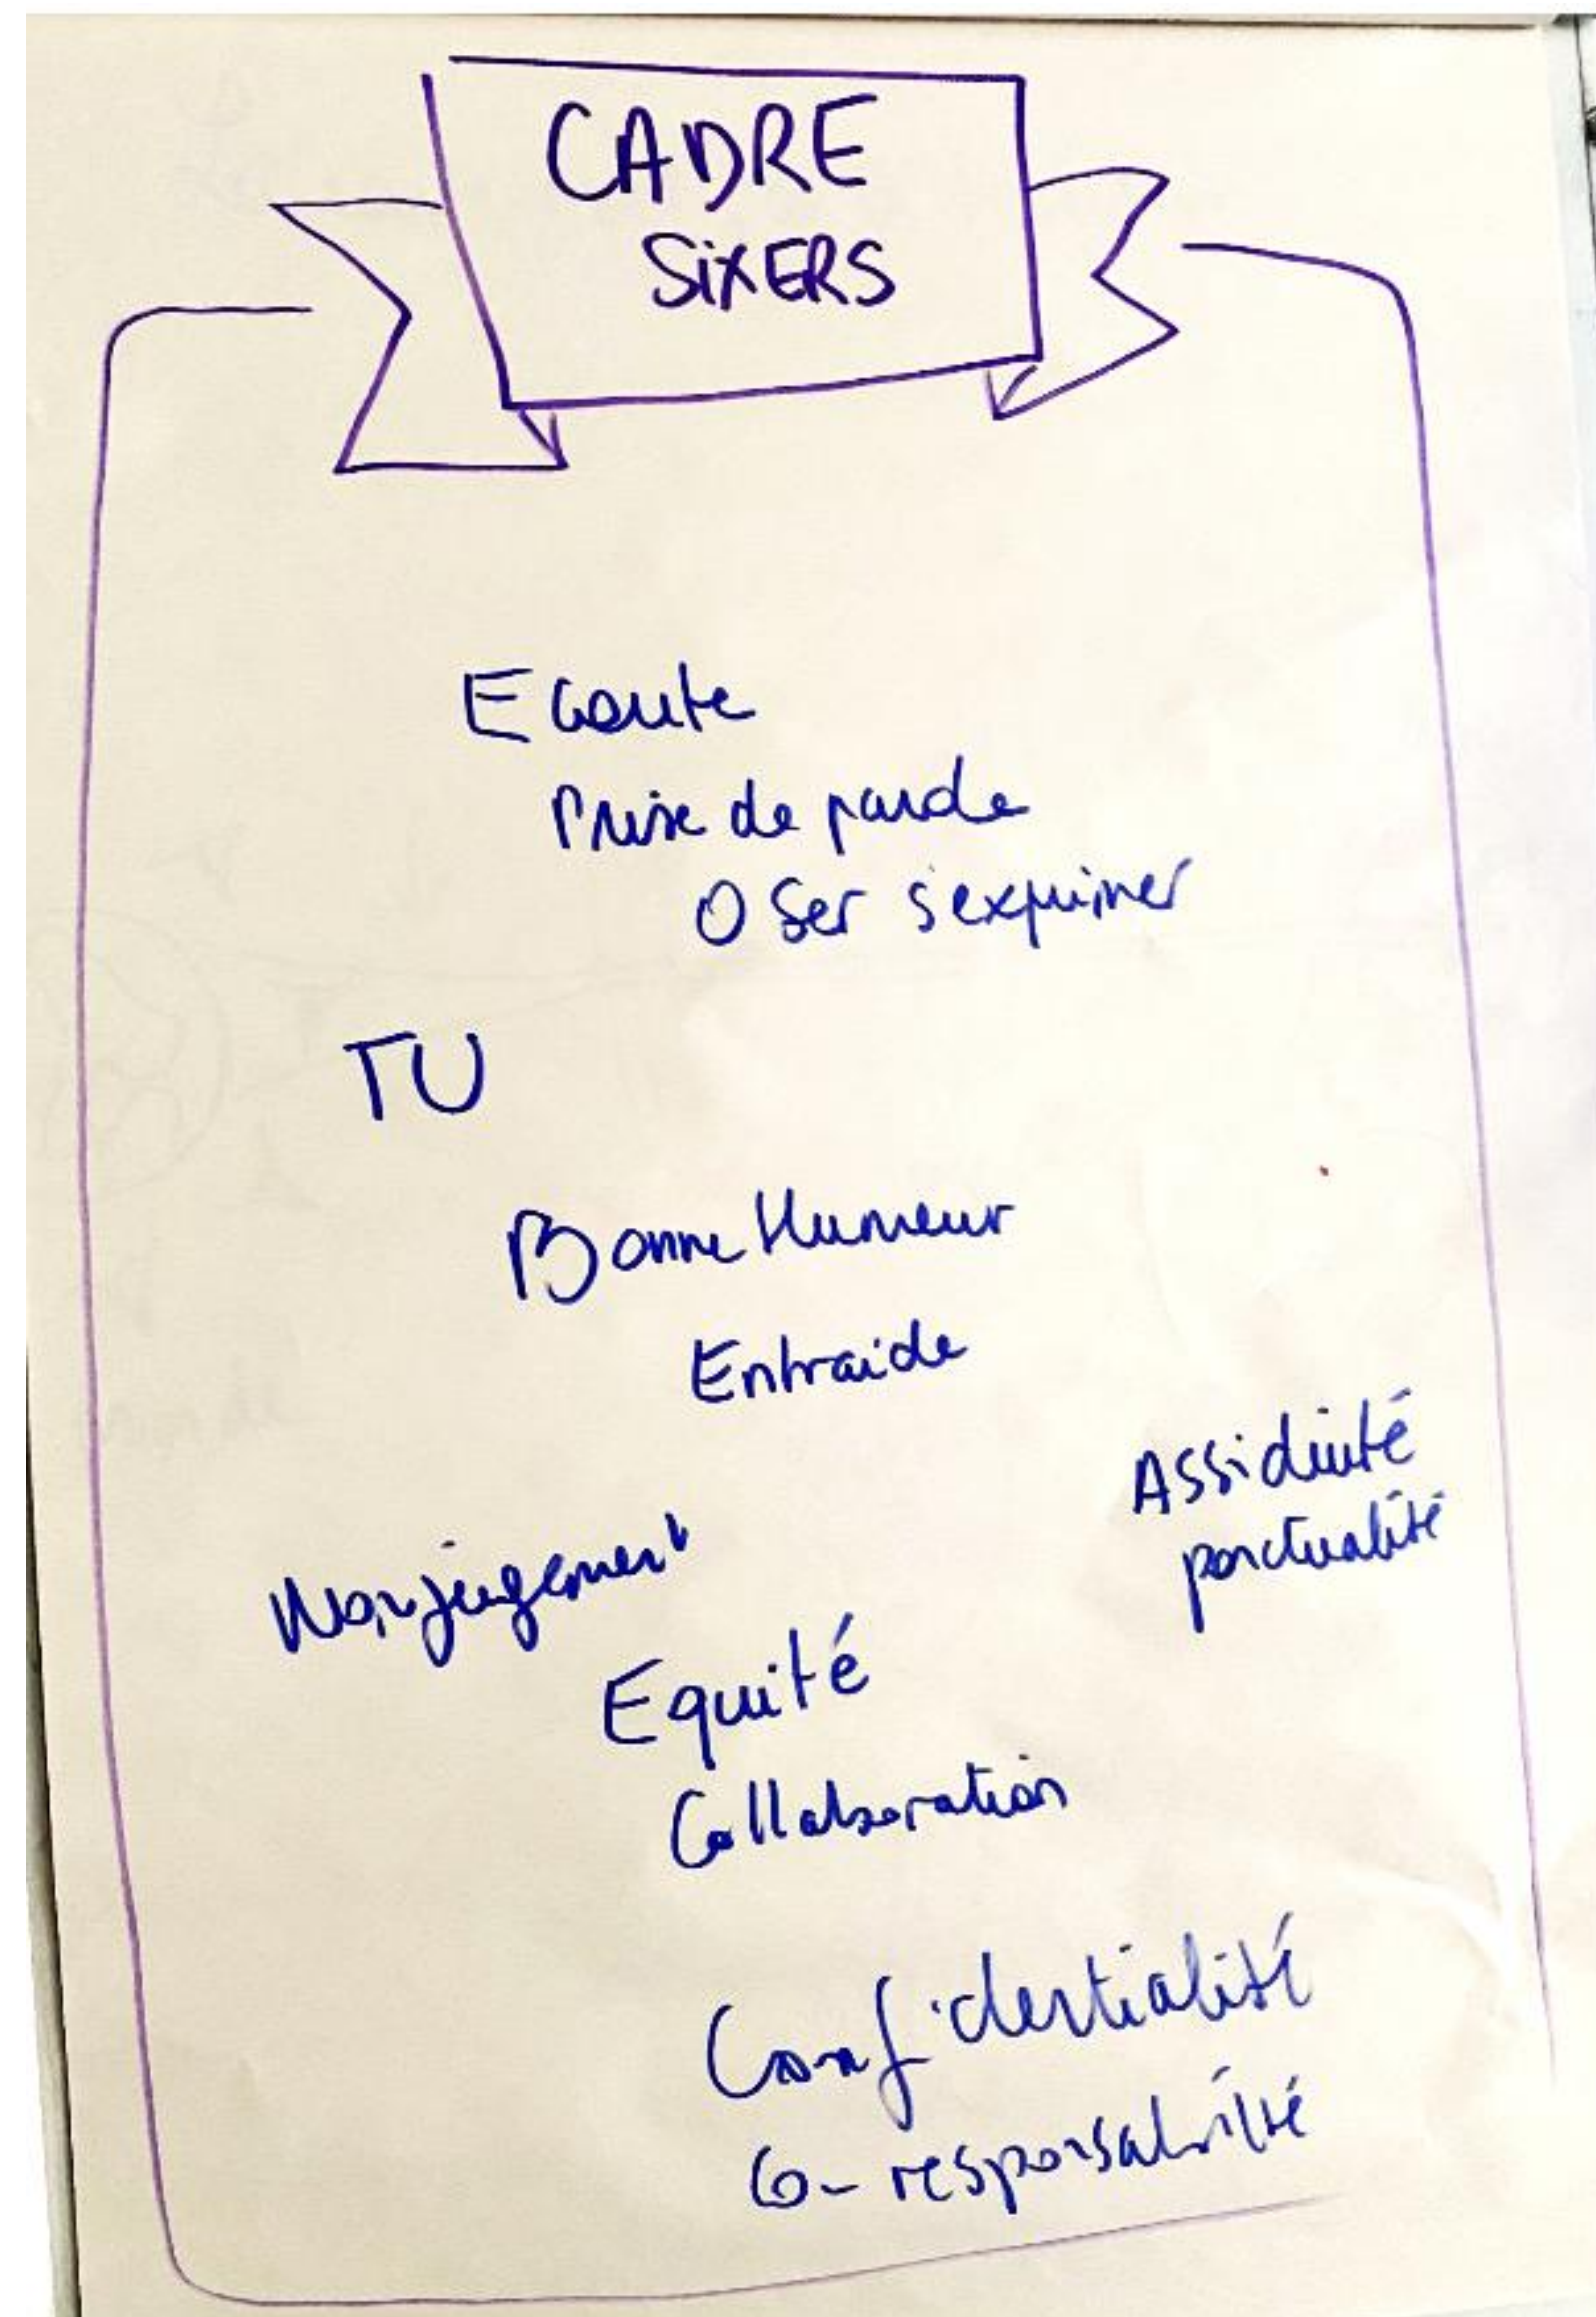 CADRE
SiXERS
Ecoute
Prise de parole
Oser s'exprimer
TU
Bonne Humeur
Entraide
Assiduité
ponctualité
Non jugement
Equité
Collaboration
Confidentialité
Co-responsabilité